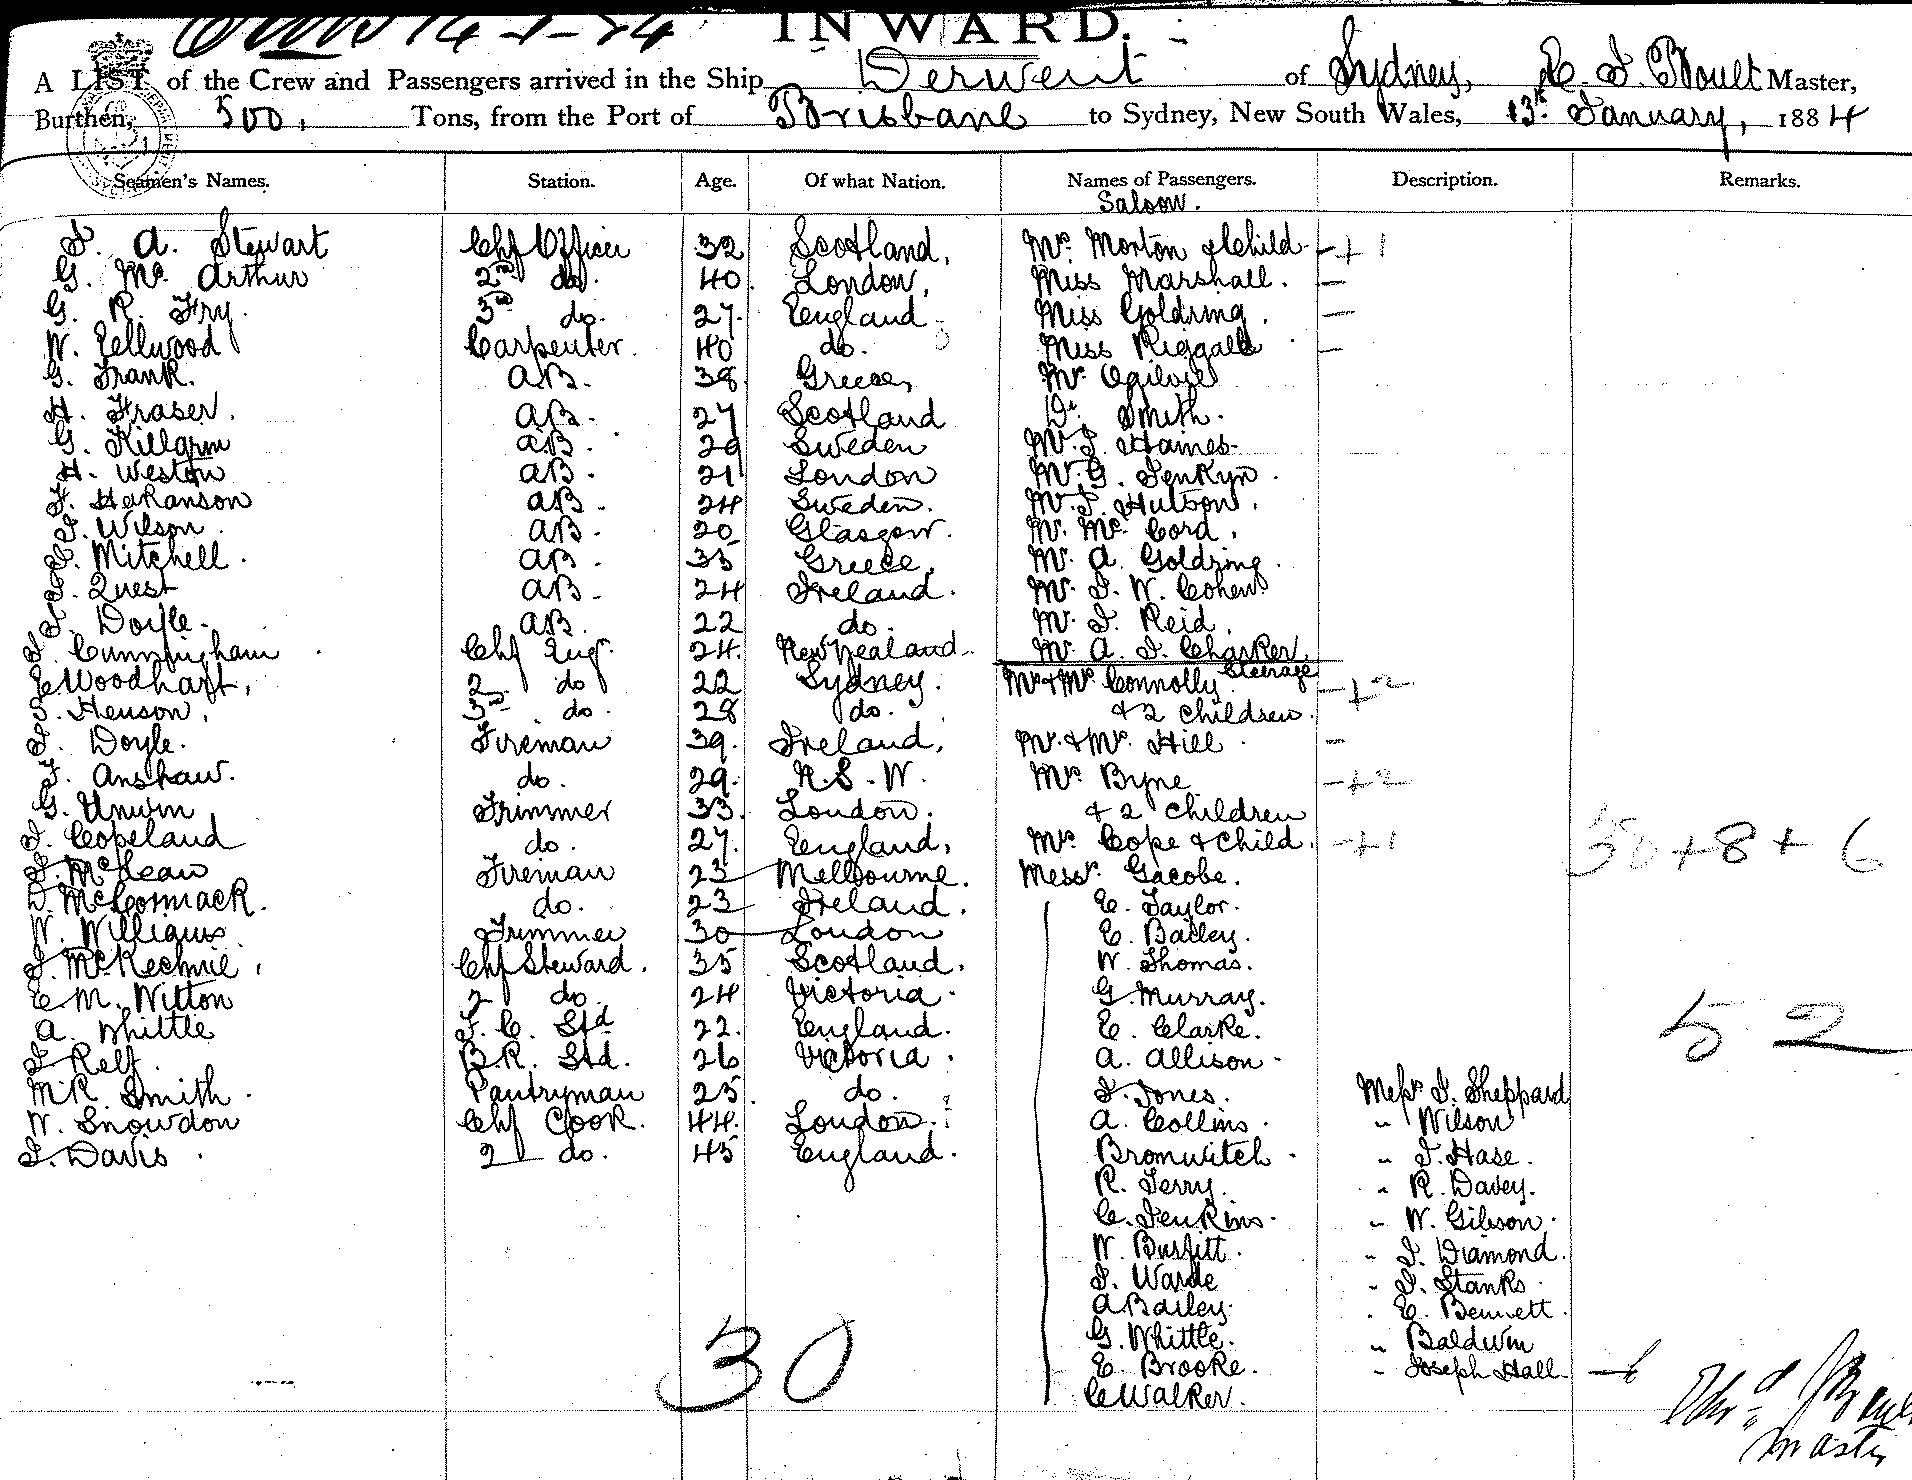 INWARD.
A LIST of the Crew and Passengers arrived in the Ship Derwent of Sydney, Boult Master,
Burthen, 500, Tons, from the Port of Brisbane to Sydney, New South Wales, 13th January, 1884
Seamen's Names. Station. Age. Of what Nation. Names of Passengers. Description. Remarks.
Saloon.
A. Stewart Chf Officer 32 Scotland, Mrs. Morton & Child - + 1
G. Mc Arthur 2nd do. 40 London, Miss Marshall. -
G. R. Fry. 3rd do. 27. England Miss Goldring. -
W. Eellwood Carpenter. 40 do. Miss Riggall -
G. Frank. AB. 38 Greece, Mr Ogilvie
H. Fraser. AB. 27 Scotland Dr. Smith.
G. Killgrin AB. 29 Sweden Mr. J. Haines
H. Weston AB. 21 London Mr. G. Jenkyn.
F. Hakanson AB. 24 Sweden. Mr. J. Hutson.
J. Wilson. AB. 20 Glasgow. Mr. Mc Cord.
C. Mitchell. AB. 35 Greece, Mr. A. Goldring.
Quest AB. 24 Ireland. Mr. J. W. Cohen
J. Doyle. AB. 22 do. Mr. J. Reid.
J. Cunningham Chf Eng. 24. New Zealand. Mr. A. J. Charker.
E Woodhart, 2 do 22 Sydney. Mr & Mrs Connolly Steerage - + 2
J. Henson, 3rd do. 28 do. & 2 children.
J. Doyle. Fireman 39. Ireland. Mr. & Mrs. Hill -
F. Anshaw. do. 29. N.S.W. Mrs Byrne - + 2
G. Unwin Trimmer 33. London. & 2 children
J. Copeland do. 27. England, Mrs. Cope & Child. - + 1 30 + 8 + 6
J. McLean Fireman 23 Melbourne. Messrs. Gacobe.
D. McCormack. do. 23 Ireland. E. Taylor.
W. Williams Trimmer 30 London E. Bailey.
J. McKechnie, Chf Steward. 35 Scotland. W. Thomas.
E. M. Witton 2 do. 24 Victoria. G. Murray. 52
A. Whittle F. C. Std 22. England. E. Clarke.
J Relf. B.R. Std. 26 Victoria. A. Allison.
M.R. Smith. Pantryman 25. do. J. Jones. Messrs J. Sheppard
W. Snowdon Chf Cook. 44. London. A. Collins. " Wilson
J. Davis. 2 do. 45 England. Bromwitch. " J. Hase.
R. Terry. " R. Davey.
C. Jenkins. " W. Gibson.
W. Busfitt. " J. Diamond.
J. Warde " J. Stanks.
A Bailey. " E. Bennett.
30 G. Whittle. " Baldwin
E. Brooke. " Joseph Hall
C Walker.
Master